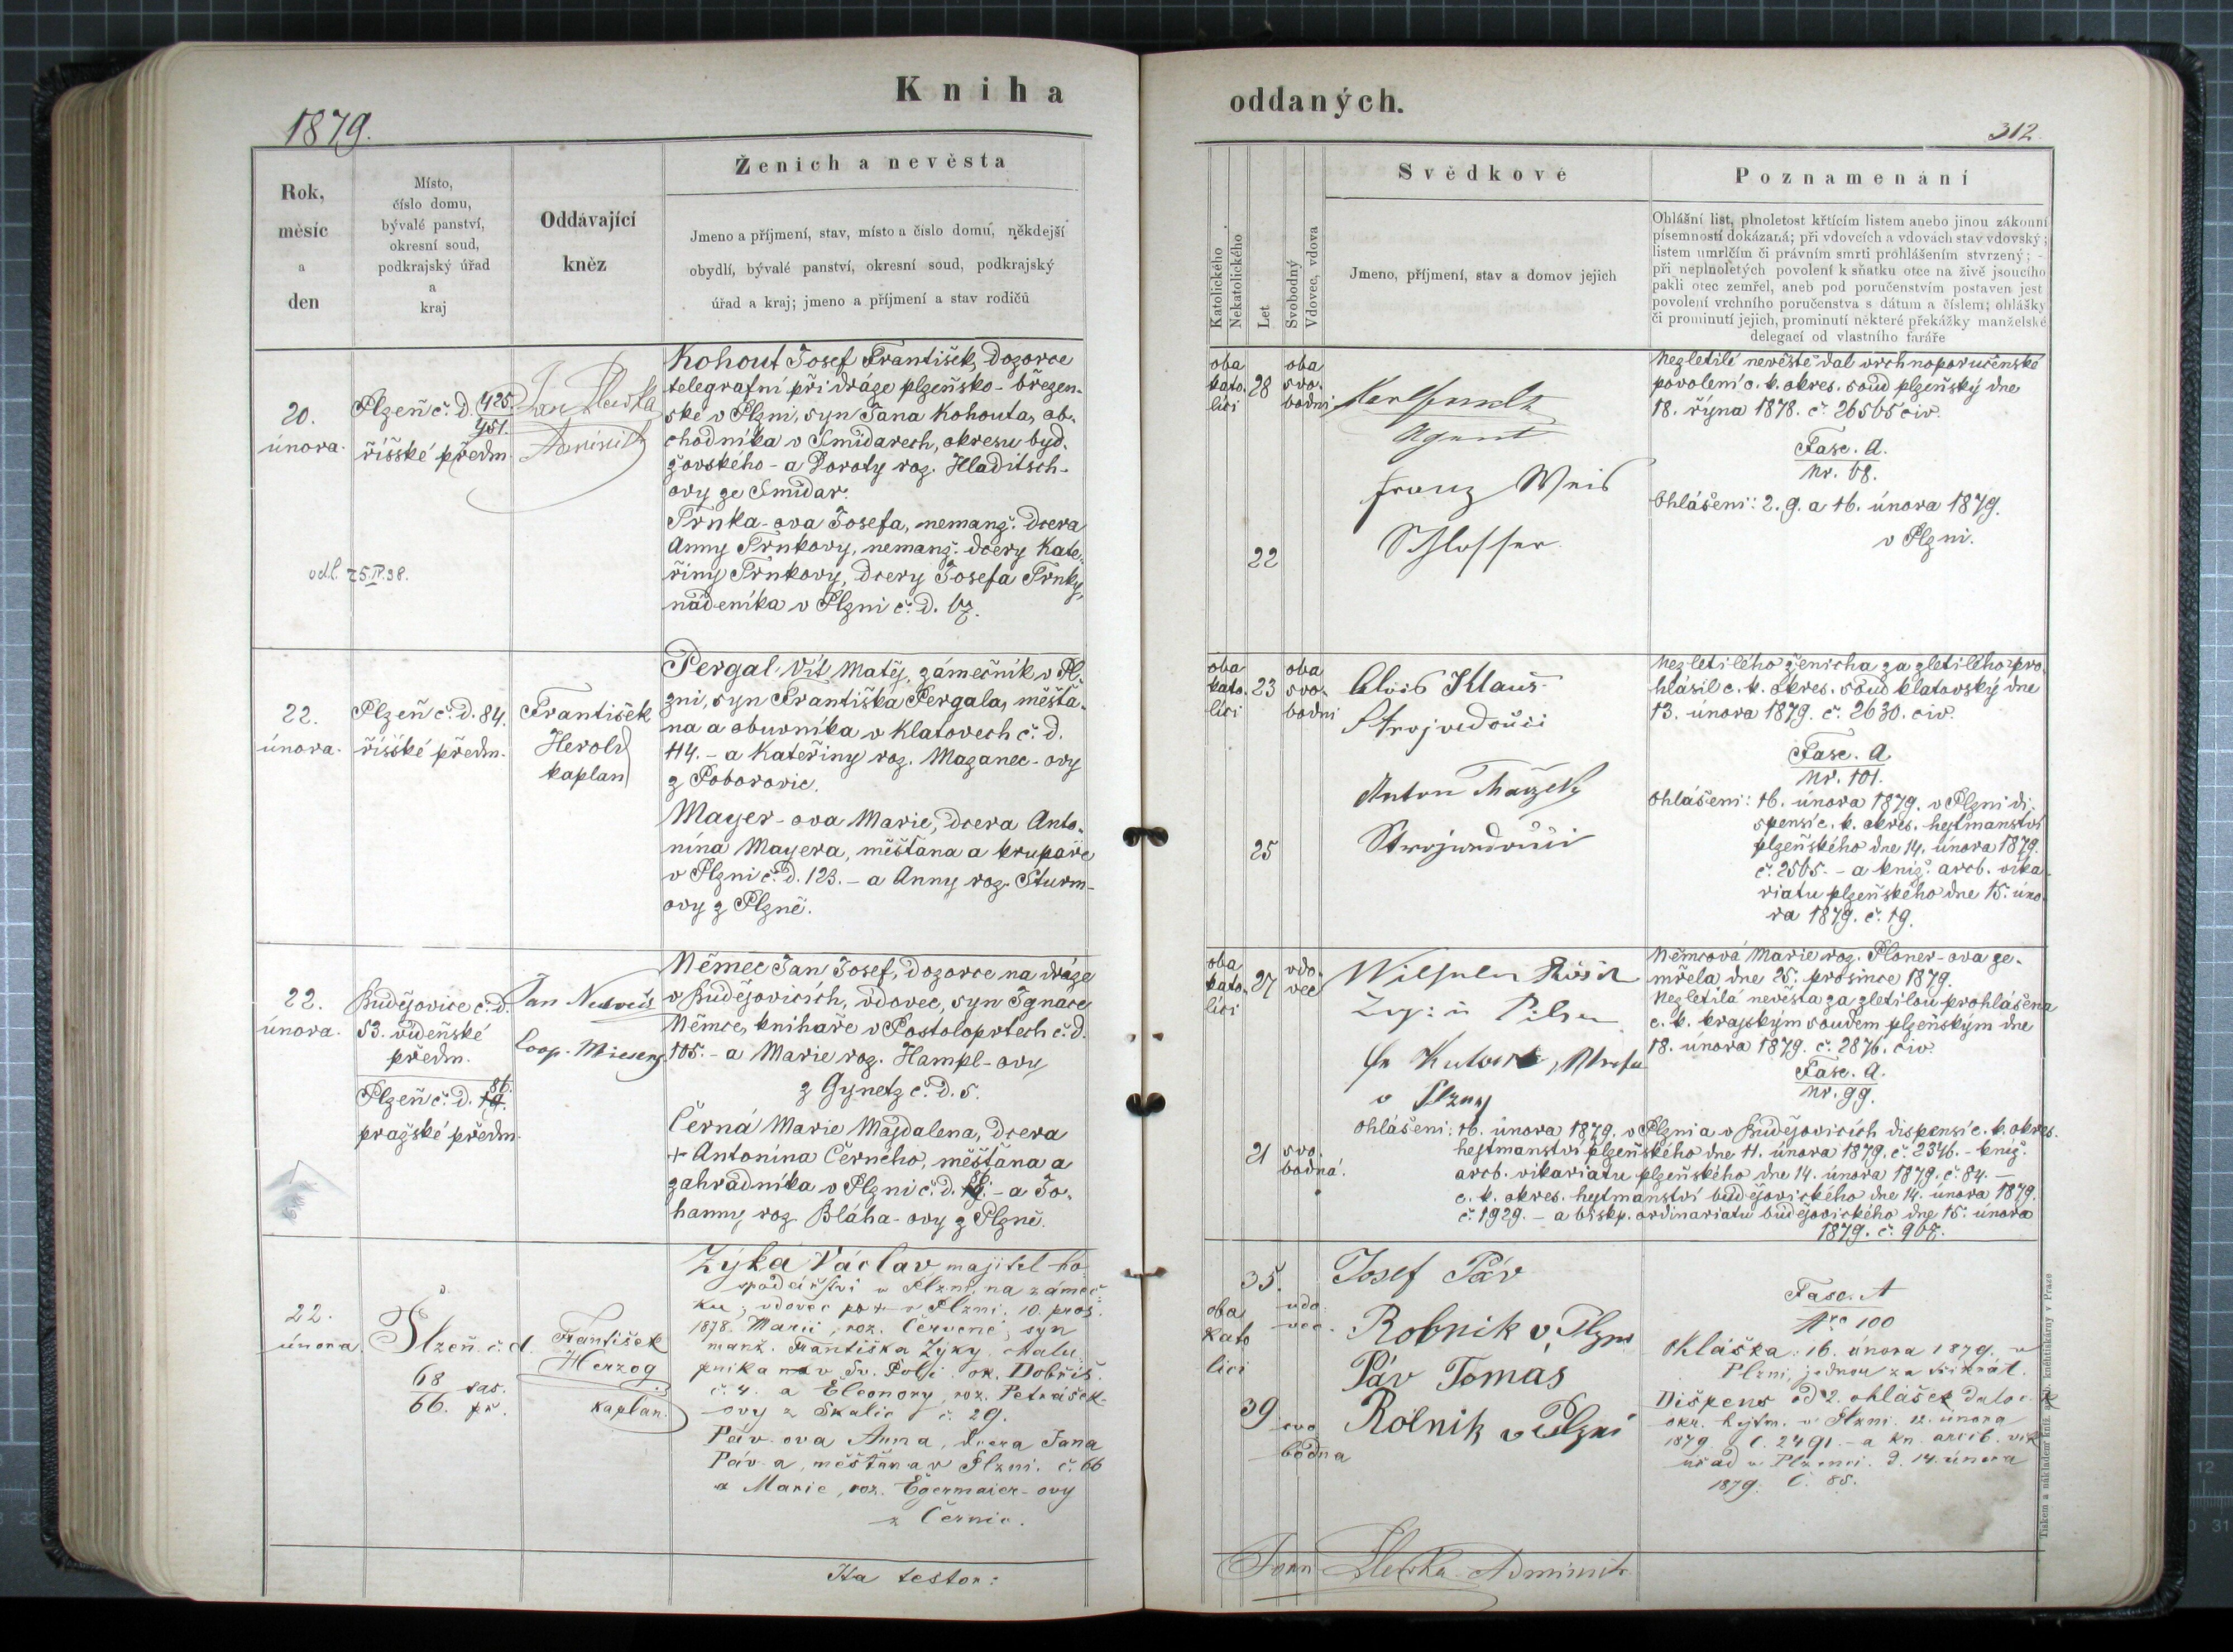 Kniha
oddaných.
1879.
312.
Rok,
měsíc
a
den
Místo,
číslo domu,
bývalé panství,
okresní soud,
podkrajský úřad
a
kraj
Oddávající
kněz
Ženich a nevěsta
Jmeno a příjmení, stav, místo a číslo domu, někdejší
obydlí, bývalé panství, okresní soud, podkrajský
úřad a kraj; jmeno a příjmení a stav rodičů
Katolického
Nekatolického
Let
Svobodný
Vdovec, vdova
Svědkové
Jmeno, příjmení, stav a domov jejich
Poznamenání
Ohlášní list, plnoletost křticím listem anebo jinou zákonní
písemností dokázaná; při vdovcích a vdovách stav vdovský;
listem umrlčím či právním smrti prohlášením stvrzený; -
při neplnoletých povolení k sňatku otce na živě jsoucího
pakli otec zemřel, aneb pod poručenstvím postaven jest
povolení vrchního poručenstva s dátum a číslem; ohlášky
či prominutí jejich, prominutí některé překážky manželské
delegací od vlastního faráře
20.
února.
odl. 25.IV.98.
Plzeň č. d. 425.
451.
říšské předm.
Kohout Josef František, dozorce
telegrafní při dráze plzeňsko-březen-
ské v Plzni, syn Jana Kohouta, ob-
chodníka v Smidarech, okresu byd-
žovského - a Doroty roz. Hladitsch-
ovy ze Smidar.
Trnka-ova Josefa, nemanž. dcera
Anny Trnkovy, nemanž. dcery Kate-
řiny Trnkovy, dcery Josefa Trnky,
nádeníka v Plzni č. d. 67.
oba
kato-
líci
28
oba
svo-
bodni
22
Agent
Franz Weis
Schlosser
Nezletilé nevěstě dal vrchnoporučenské
povolení c. k. okres. soud plzeňský dne
18. října 1878. č. 26565 civ.
Fasc. A.
Nr. 68.
Ohlášeni: 2. 9. a 16. února 1879.
v Plzni.
22.
února.
Plzeň č. d. 84.
říšské předm.
František
Herold
kaplan
Pergal Vít Matěj, zámečník v Pl-
zni, syn Františka Pergala, měšťa-
na a obuvníka v Klatovech č. d.
114. - a Kateřiny roz. Mazanec-ovy
z Poborovic.
Mayer-ova Marie, dcera Anto-
nína Mayera, měšťana a krupaře
v Plzni č. d. 123. - a Anny roz. Sturm-
ovy z Plzně.
oba
kato-
líci
23
oba
svo-
bodni
25
Alois Klaus
Strojvedoucí
Anton
Strojvedoucí
Nezletilého ženicha za zletilého pro-
hlásil c. k. okres. soud klatovský dne
13. února 1879. č. 2630. civ.
Fasc. A.
Nr. 101.
Ohlášeni: 16. února 1879. v Plzni di-
spensí c. k. okres. hejtmanství
plzeňského dne 14. února 1879.
č. 2565. - a kníž. arcb. vika-
riatu plzeňského dne 15. úno-
ra 1879. č. 19.
22.
února.
Budějovice č. d.
53. vídeňské
předm.
Plzeň č. d. 86.
pražské předm.
Jan
Coop.
Němec Jan Josef, dozorce na dráze
v Budějovicích, vdovec, syn Ignace
Němce, knihaře v Postoloprtech č. d.
105. - a Marie roz. Hampl-ovy
z Gynetz č. d. 5.
Černá Marie Majdalena, dcera
+ Antonína Černého, měšťana a
zahradníka v Plzni č. d. - a Jo-
hanny roz. Bláha-ovy z Plzně.
oba
kato-
líci
27
vdo-
vec
21
svo-
bodná.
Wilhelm
Pilsen
v Plzny
Němcová Marie roz. Ploner-ova ze-
mřela dne 25. prosince 1879.
Nezletilá nevěsta za zletilou prohlášena
c. k. krajským soudem plzeňským dne
18. února 1879. č. 2876. civ.
Fasc. A.
Nr. 99.
Ohlášeni: 16. února 1879. v Plzni a v Budějovicích dispensí c. k. okres.
hejtmanství plzeňského dne 11. února 1879. č. 2346. - kníž.
arcb. vikariatu plzeňského dne 14. února 1879. č. 84. -
c. k. okres. hejtmanství budějovického dne 14. února 1879.
č. 1929. - a biskp. ordinariatu budějovického dne 15. února
1879. č. 967.
22.
února
Plzeň. č. d.
68 sas.
66. pr.
František
Herzog
kaplan.
Zýka Václav, majitel ho-
spodářství v Plzni, na zámeč-
ku, vdovec po + v Plzni. 10. pros.
1878. Marii, roz. Červené, syn
manž. Františka Zýky. Chalu-
pníka v Sv. Poli. ok. Dobříš.
č. 4. a Eleonory, roz. Petrášek-
ovy z Skalic č. 29.
Páv-ova Anna, dcera Jana
Páv-a, měšťana v Plzni. č. 66
a Marie, roz. Egermaier-ovy
z Černic.
35.
oba
kato
líci
vdo-
vec.
39
svo
bodna
Josef Páv
Robnik v Plzni
Páv Tomas
Rolnik v Plzni
Fasc. A
Nro 100
Ohláška: 16. února 1879. v
Plzni, jednou za třikrát.
Dispens od 2. ohlášek dalo c. k.
okr. hejtm. v Plzni. 12. února
1879. č. 2491. - a kn. arcib. vik.
úřad v Plzni. d. 14. února
1879. č. 85.
Ita testor:
Administr.
Tiskem a nákladem kníž. arcib. knihtiskárny v Praze